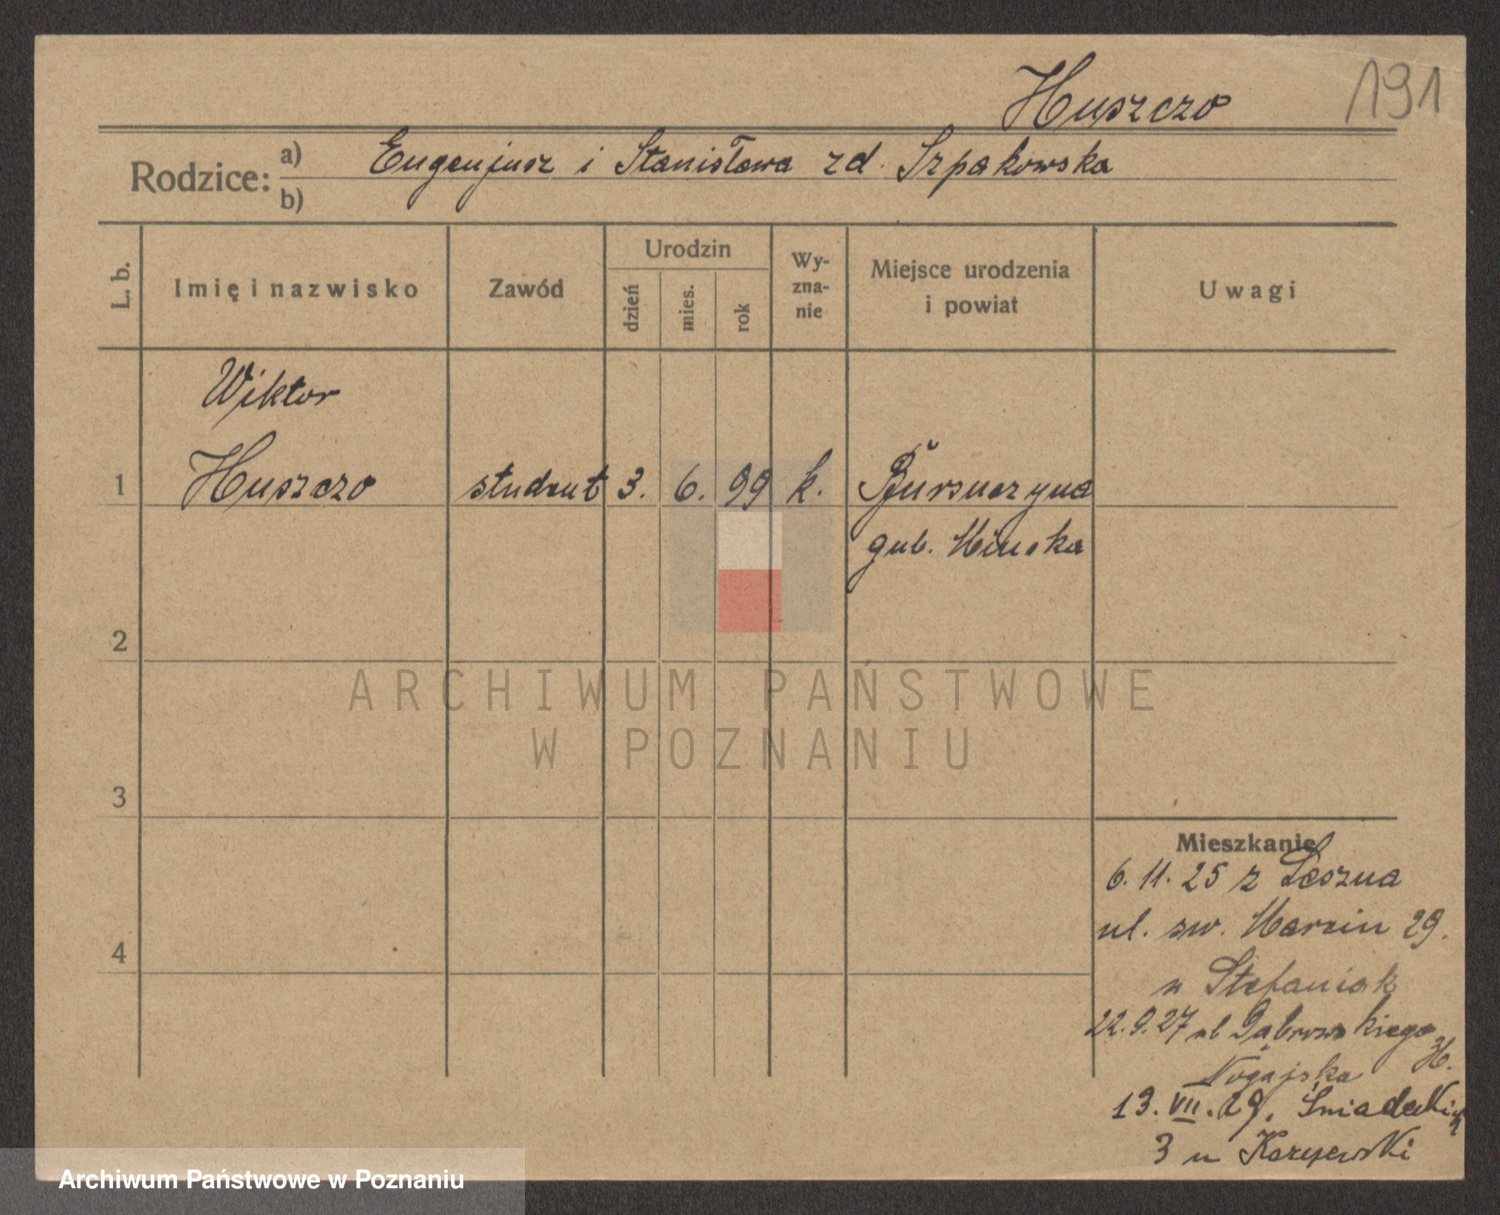 191
Huszczo
Rodzice: a) Eugenjusz i Stanisława zd. Szpakowska
b)
L. b.
Imię i nazwisko
Zawód
Urodzin
dzień
mies.
rok
Wy-
zna-
nie
Miejsce urodzenia
i powiat
Uwagi
Wiktor
1 Huszczo student 3. 6. 99 k.
gub. Mińska
2
3
4
ARCHIWUM PAŃSTWOWE
W POZNANIU
Mieszkanie
6. 11. 25 z Leszna
ul. św. Marcin 29.
u Stefaniak
22. 9. 27 ul Dąbrowskiego
Nogajska
13. VII. 29. Śniadeckich
3 u
Archiwum Państwowe w Poznaniu